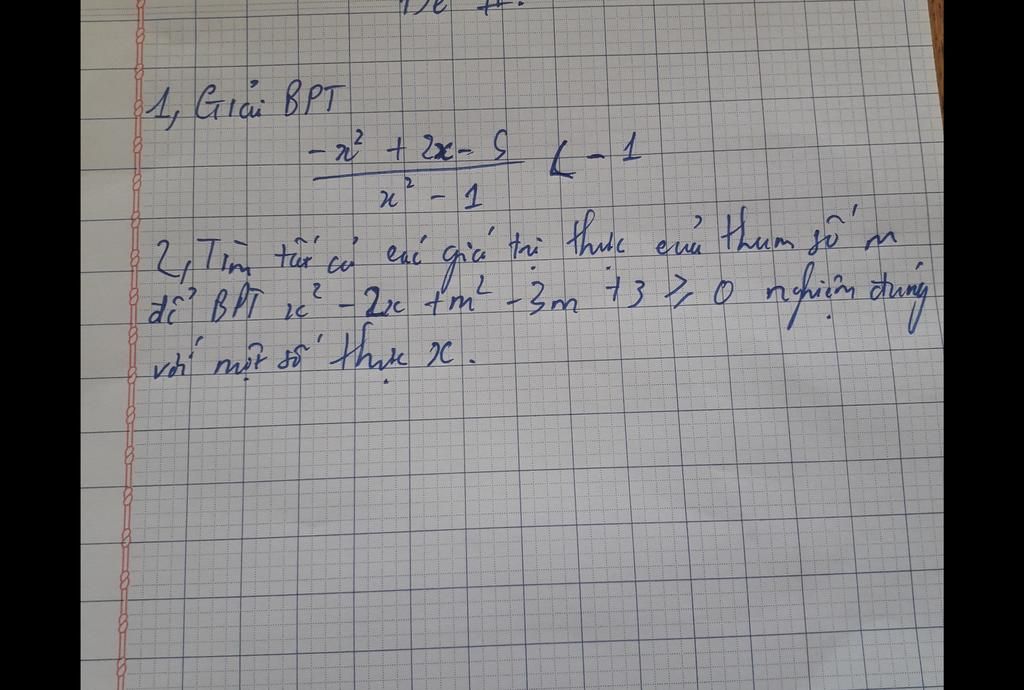 1, Giải BPT
-x² + 2x - 5 / x² - 1 < -1
2, Tìm tất cả các giá trị thực của tham số m
để BPT x² - 2x + m² - 3m + 3 ≥ 0 nghiệm đúng
với mọi số thực x.